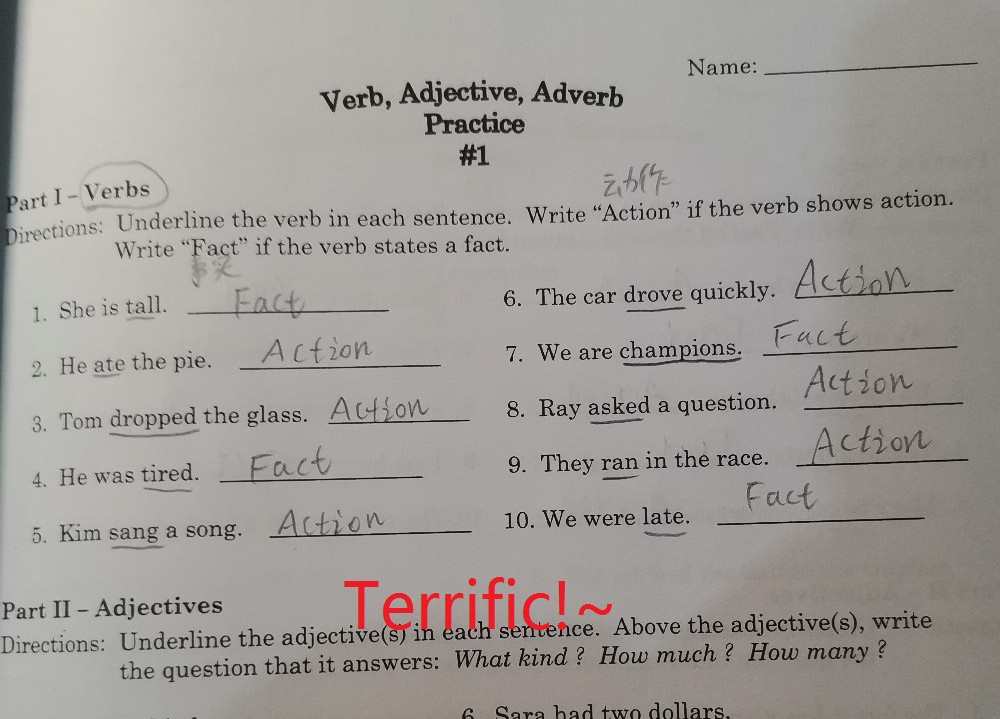 Name:
Verb, Adjective, Adverb
Practice
#1
Part I – Verbs
动作
Directions: Underline the verb in each sentence. Write “Action” if the verb shows action.
Write “Fact” if the verb states a fact.
事实
1. She is tall. Fact
2. He ate the pie. Action
3. Tom dropped the glass. Action
4. He was tired. Fact
5. Kim sang a song. Action
6. The car drove quickly. Action
7. We are champions. Fact
8. Ray asked a question. Action
9. They ran in the race. Action
10. We were late. Fact
Terrific!~
Part II – Adjectives
Directions: Underline the adjective(s) in each sentence. Above the adjective(s), write
the question that it answers: What kind ? How much ? How many ?
6. Sara had two dollars.